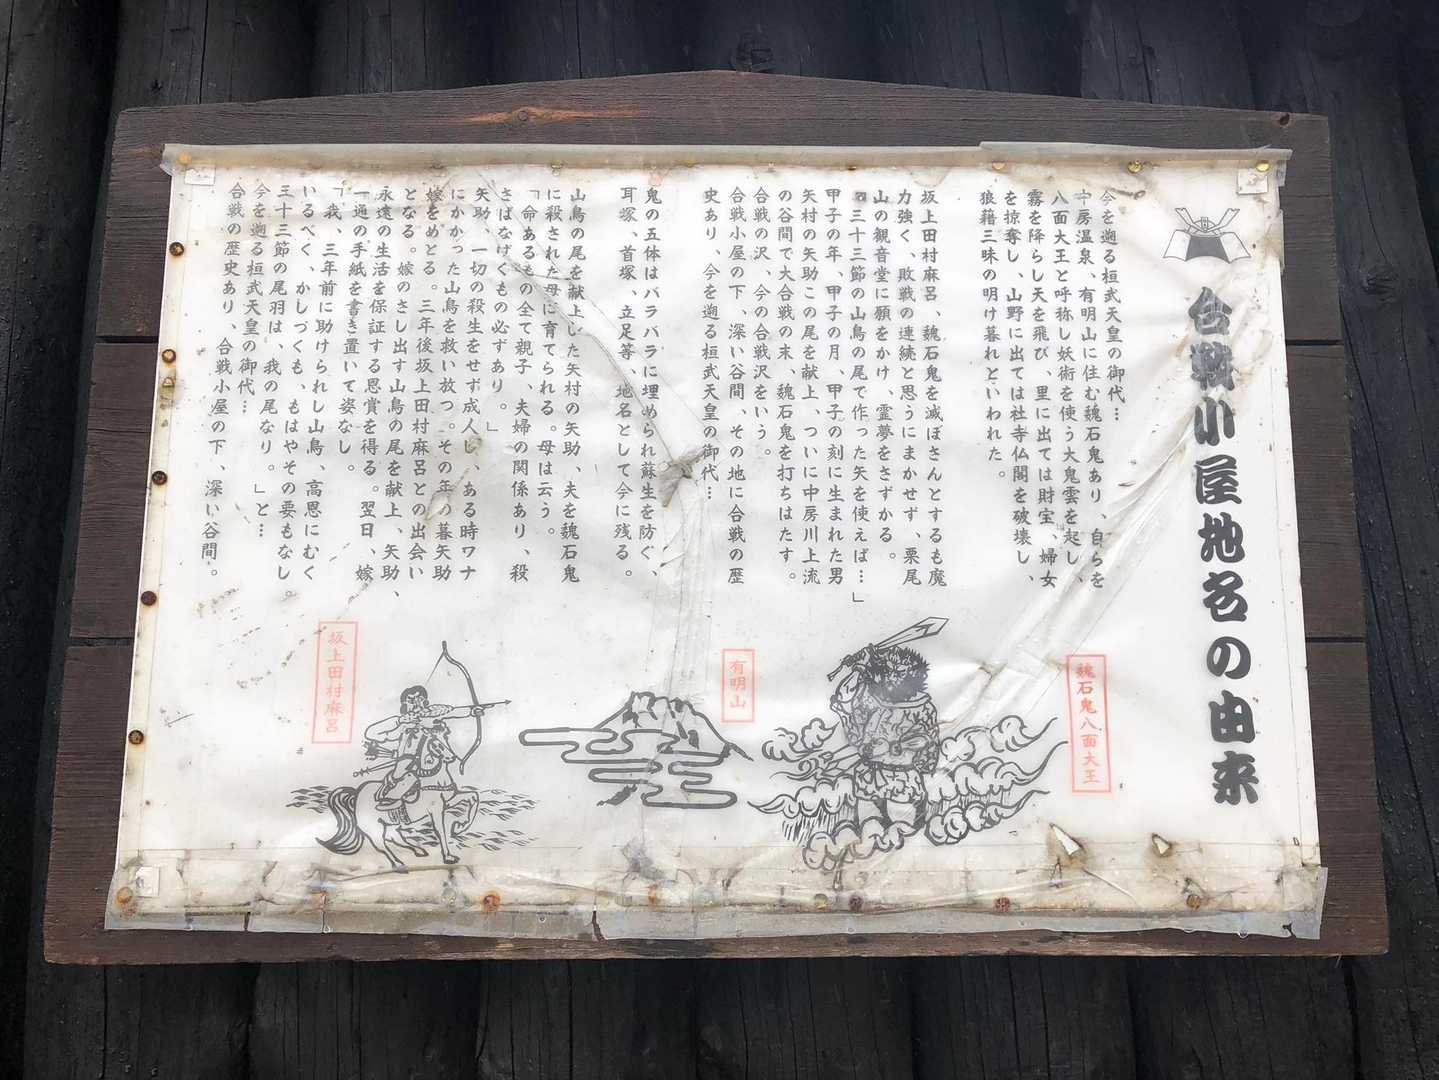 合戦小屋地名の由来
今を遡る桓武天皇の御代…
中房温泉、有明山に住む魏石鬼あり、自らを
八面大王と呼称し妖術を使う大鬼雲を起し、
霧を降らし天を飛び、里に出ては財宝、婦女
を掠奪し、山野に出ては社寺仏閣を破壊し、
狼藉三昧の明け暮れといわれた。
坂上田村麻呂、魏石鬼を滅ぼさんとするも魔
力強く、敗戦の連続と思うにまかせず、栗尾
山の観音堂に願をかけ、霊夢をさずかる。
三十三節の山鳥の尾で作った矢を使えば…」
甲子の年、甲子の月、甲子の刻に生まれた男
矢村の矢助この尾を献上、ついに中房川上流
の谷間で大合戦の末、魏石鬼を打ちはたす。
合戦の沢、今の合戦沢をいう。
合戦小屋の下、深い谷間、その地に合戦の歴
史あり、今を遡る桓武天皇の御代…
鬼の五体はバラバラに埋められ蘇生を防ぐ、
耳塚、首塚、立足等、地名として今に残る。
山鳥の尾を献上した矢村の矢助、夫を魏石鬼
に殺された母に育てられる。母は云う。
「命あるもの全て親子、夫婦の関係あり、殺
さばなげくもの必ずあり。」
矢助、一切の殺生をせず成人し、ある時ワナ
にかかった山鳥を救い放つ。その年の暮矢助
嫁をめとる。三年後坂上田村麻呂との出会い
となる。嫁のさし出す山鳥の尾を献上、矢助、
永遠の生活を保証する恩賞を得る。翌日、嫁
一通の手紙を書き置いて姿なし。
「我、三年前に助けられし山鳥、高恩にむく
いるべく、かしづくも、もはやその要もなし。
三十三節の尾羽は、我の尾なり。」と…
今を遡る桓武天皇の御代…
合戦の歴史あり、合戦小屋の下、深い谷間。
魏石鬼八面大王
有明山
坂上田村麻呂